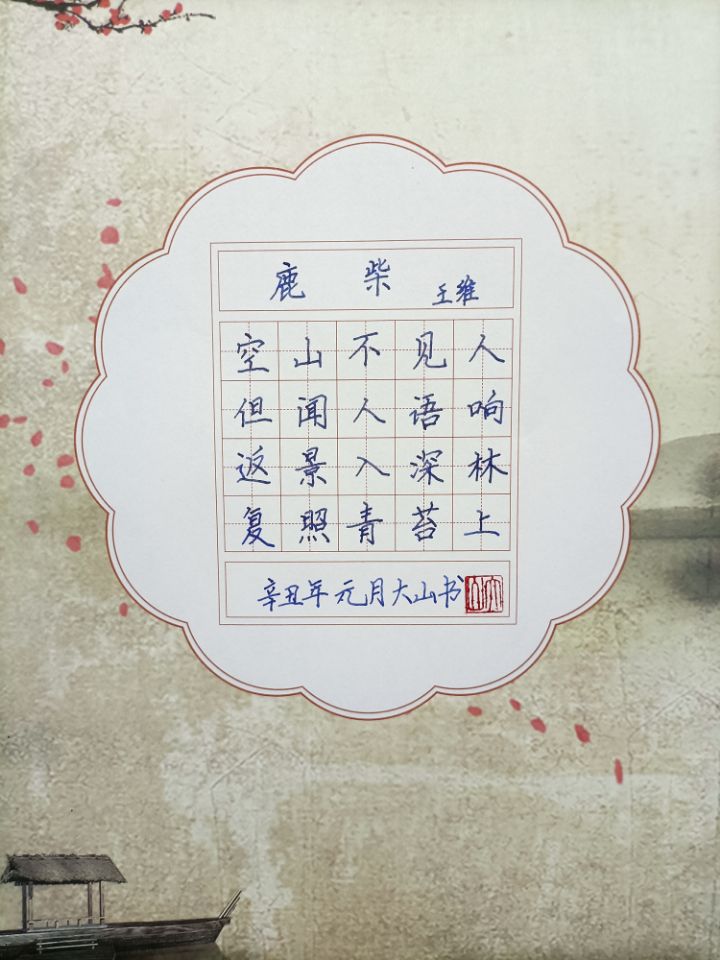 鹿柴 王维
空山不见人
但闻人语响
返景入深林
复照青苔上
辛丑年元月大山书